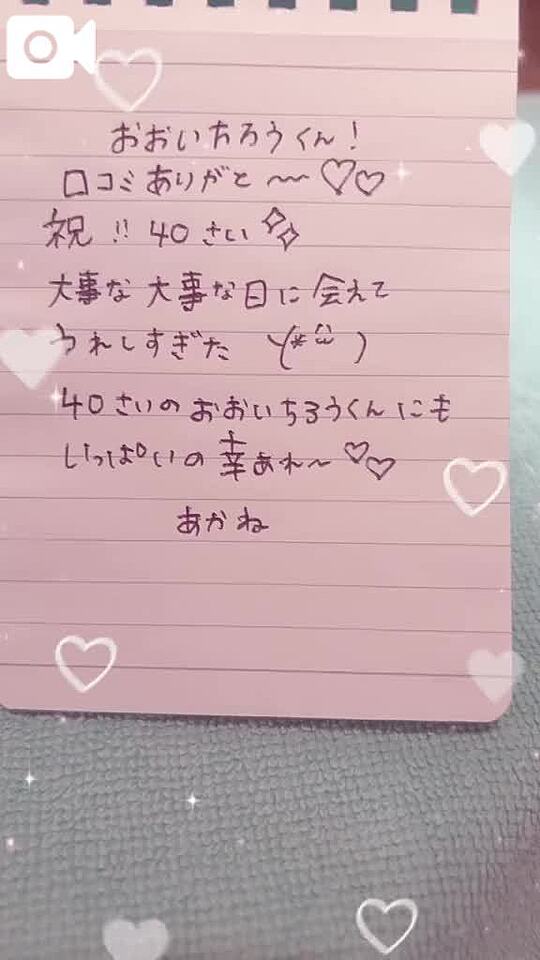 おおいちろうくん!
口コミありがと〜〜♡♡
祝!! 40さい✧✧
大事な大事な日に会えて
うれしすぎた ヽ(*^ω^)
40さいのおおいちろうくんにも
いっぱいの幸あれ〜♡♡
あかね